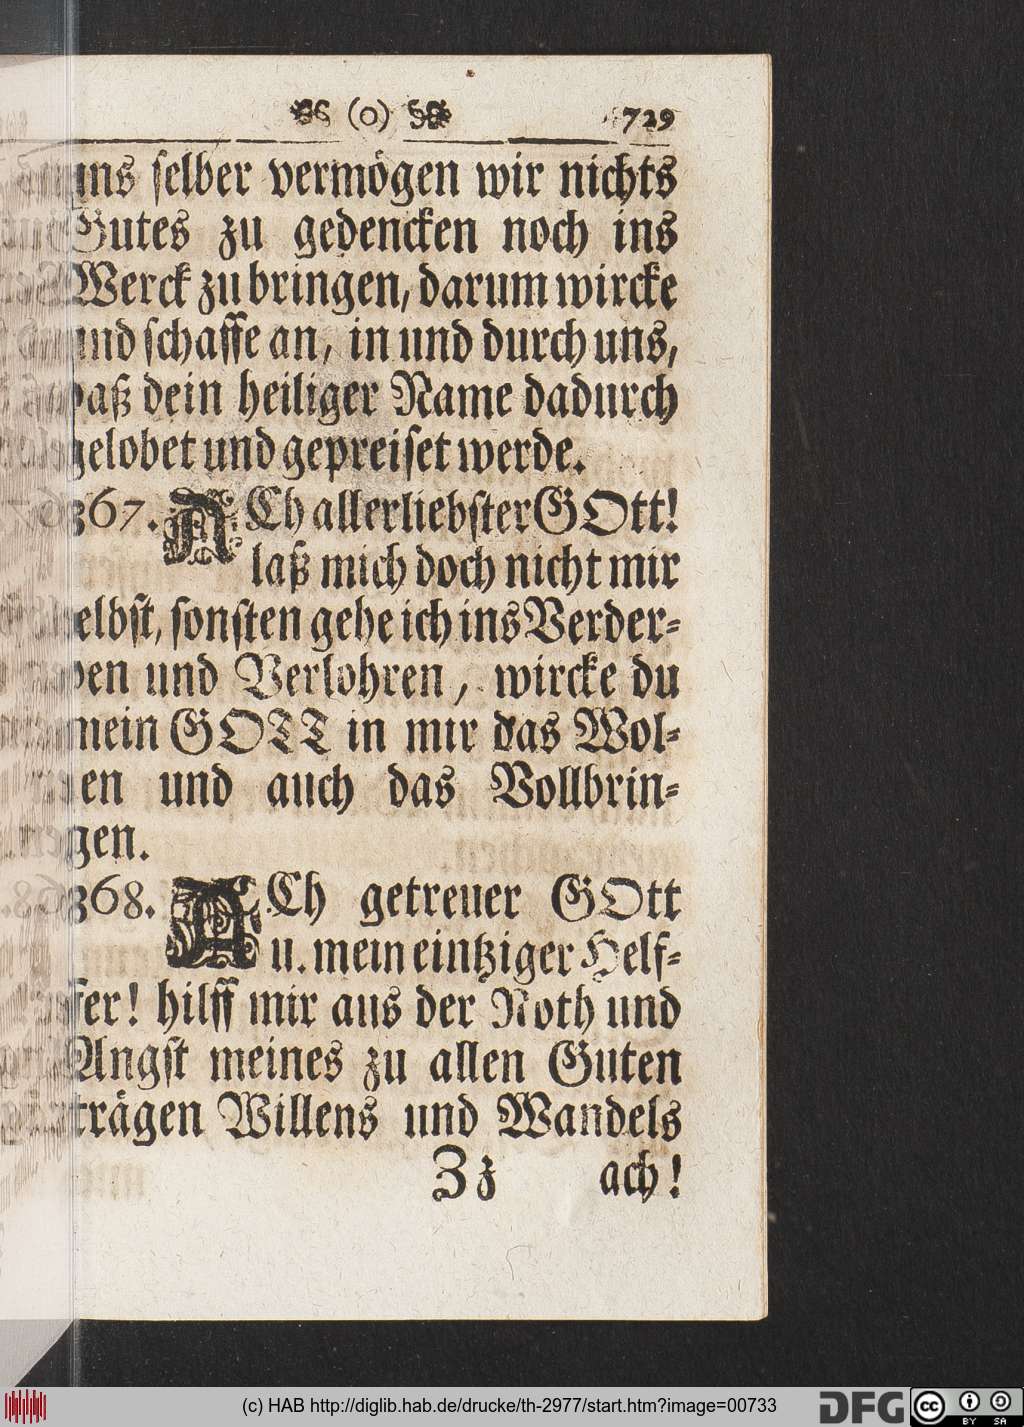 (o) 729
uns selber vermögen wir nichts
Gutes zu gedencken noch ins
Werck zu bringen, darum wircke
und schaffe an, in und durch uns,
daß dein heiliger Name dadurch
gelobet und gepreiset werde.
367. ACh allerliebster GOtt!
laß mich doch nicht mir
selbst, sonsten gehe ich ins Verder⸗
ben und Verlohren, wircke du
mein GOTT in mir das Wol⸗
en und auch das Vollbrin⸗
gen.
368. ACh getreuer GOtt
u. mein eintziger Helf⸗
fer! hilff mir aus der Noth und
Angst meines zu allen Guten
trägen Willens und Wandels
Zz ach!
(c) HAB http://diglib.hab.de/drucke/th-2977/start.htm?image=00733
DFG
cc BY SA